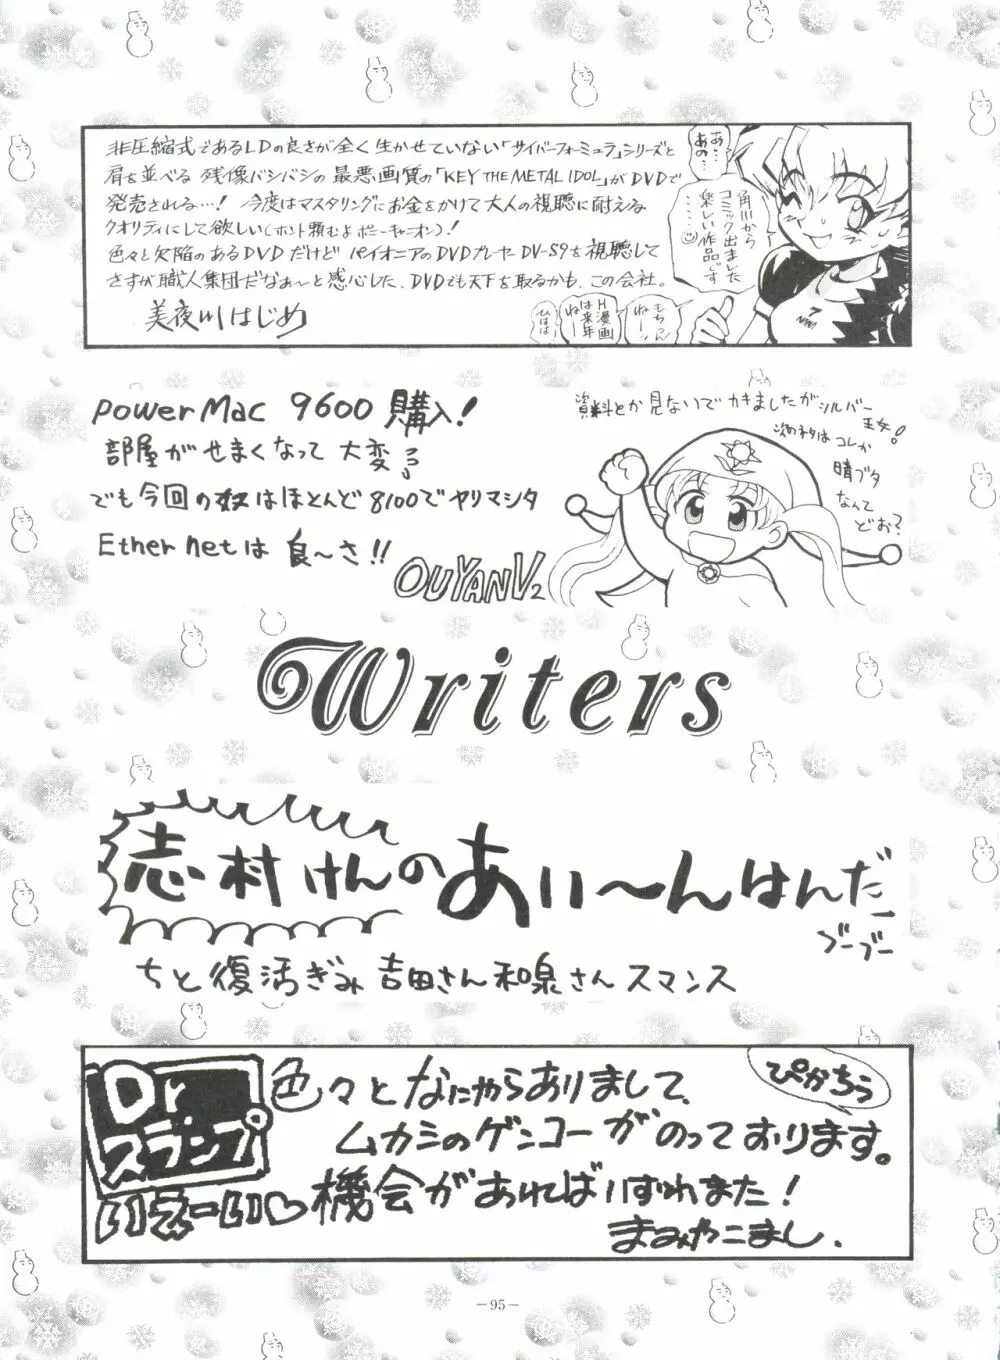 非圧縮式であるLDの良さが全く生かせていない「サイバーフォーミュラ」シリーズと
肩を並べる残像バシバシの最悪画質の「KEY THE METAL IDOL」がDVDで
発売される…! 今度はマスタリングにお金をかけて大人の視聴に耐えうる
クオリティにして欲しい(ホント頼むよポニーキャニオン)!
色々と欠陥のあるDVDだけどパイオニアのDVDプレーヤーDV-S9を視聴して
さすが職人集団だなぁ〜と感心した、DVDでも天下を取るかも、この会社。
美夜川はじめ
あ…
あの…
角川から
コミック出ました
楽しい作品です
……
もちろん
ねーッ
H漫画
は来年
ねー
ひはは
Power Mac 9600 購入!
部屋がせまくなって大変
でも今回の奴はほとんど8100でヤリマシタ
Ether netは良〜さ!!
OUYANV2
資料とか見ないでカキましたがシルバー
王女!
次のネタはコレか
晴ブタ
なんて
どお?
Writers
志村けんのあい〜んはんだー
ブーブー
ちと復活ぎみ 吉田さん和泉さんスマンス
Dr
スランプ
いえーい♡
色々となにやらありまして、
ムカシのゲンコーがのっております。
機会があればいずれまた!
まみやこまし.
ぴかちう
−95−